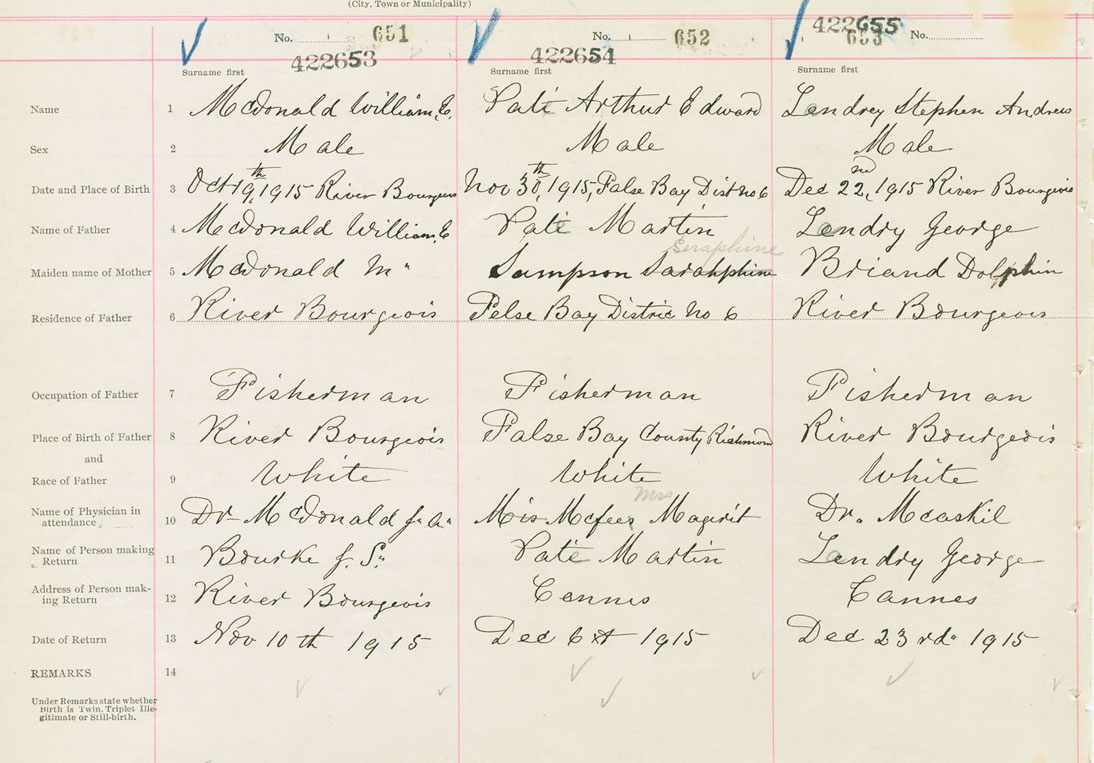 (City, Town or Municipality)
No. 651 No. 652 422655
422653 422654 653 No.
Surname first Surname first Surname first
Name 1 McDonald William, E. Pate Arthur Edward Landrey Stephen Andrew
Sex 2 Male Male Male
Date and Place of Birth 3 Oct 19th, 1915 River Bourgeois Nov 30th, 1915, False Bay Dist no 6 Dec 22nd, 1915 River Bourgeois
Name of Father 4 McDonald William, E Pate Martin Landry George
Seraphine
Maiden name of Mother 5 McDonald M" Sampson Sarahphine Briand Dolphin
Residence of Father 6 River Bourgeois Felse Bay Distric No 6 River Bourgeois
Occupation of Father 7 Fisherman Fisherman Fisherman
Place of Birth of Father 8 River Bourgeois False Bay County Richmond River Bourgeois
and
Race of Father 9 White White White
Mrs
Name of Physician in
attendance 10 Dr McDonald J. A. Mis Mcfees Magerit Dr. Mcaskil
Name of Person making
Return 11 Bourke J. S. Pate Martin Landry George
Address of Person mak-
ing Return 12 River Bourgeois Cannes Cannes
Date of Return 13 Nov 10th 1915 Dec 6th 1915 Dec 23rd 1915
REMARKS 14
Under Remarks state whether
Birth is Twin. Triplet Ille-
gitimate or Still-birth.